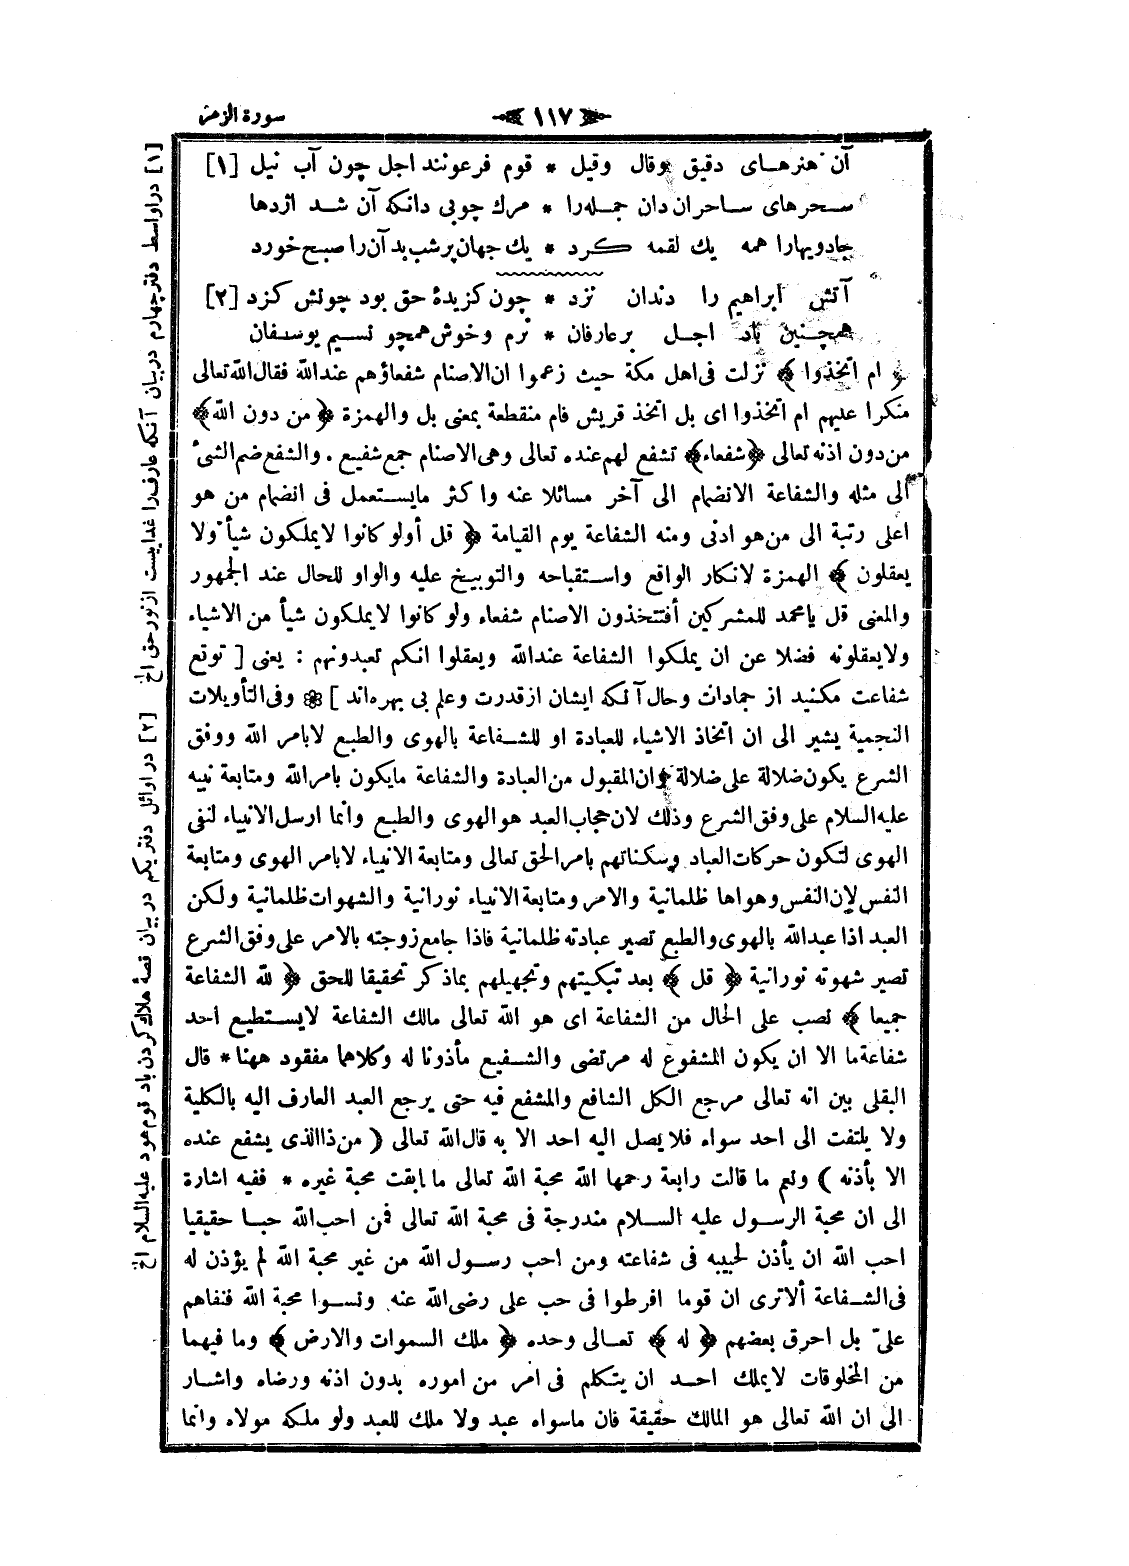 سورة الزمر
﴿ ١١٧ ﴾
آن هنرهای دقیق وقال وقیل * قوم فرعونند اجل چون آب نیل [١]
سحرهای ساحران دان جمله‌را * مرك چوبی دانکه آن شد اژدها
جادویهارا همه یك لقمه کرد * یك جهان پرشب بد آن را صبح خورد
آتش ابراهیم را دندان نزد * چون کزیدۀ حق بود چونش کزد [٢]
همچنین باد اجل بر عارفان * نرم وخوش همچو نسیم یوسفان
﴿ ام اتخذوا ﴾ نزلت فی اهل مكة حیث زعموا ان الاصنام شفعاؤهم عندالله فقال الله تعالی
منكرا علیهم ام اتخذوا ای بل اتخذ قریش فام منقطعة بمعنی بل والهمزة ﴿ من دون الله ﴾
من دون اذنه تعالی ﴿ شفعاء ﴾ تشفع لهم عنده تعالی وهی الاصنام جمع شفیع . والشفع ضم الشئ
الی مثله والشفاعة الانضمام الی آخر مسائلا عنه واكثر مایستعمل فی انضمام من هو
اعلی رتبة الی من هو ادنی ومنه الشفاعة یوم القیامة ﴿ قل أولو كانوا لایملكون شیأ ولا
یعقلون ﴾ الهمزة لانكار الواقع واستقباحه والتوبیخ علیه والواو للحال عند الجمهور
والمعنی قل یامحمد للمشركین أفتتخذون الاصنام شفعاء ولو كانوا لایملكون شیأ من الاشیاء
ولایعقلونه فضلا عن ان یملكوا الشفاعة عندالله ویعقلوا انكم تعبدونهم : یعنی [ توقع
شفاعت مكنید از جمادات وحال آنكه ایشان ازقدرت وعلم بی بهره‌اند ] ❁ وفی التأویلات
النجمیة یشیر الی ان اتخاذ الاشیاء للعبادة او للشفاعة بالهوی والطبع لابامر الله ووفق
الشرع یكون ضلالة علی ضلالة وان المقبول من العبادة والشفاعة مایكون بامرالله ومتابعة نبیه
علیه السلام علی وفق الشرع وذلك لان حجاب العبد هو الهوی والطبع وانما ارسل الانبیاء لنفی
الهوی لتكون حركات العباد وسكناتهم بامر الحق تعالی ومتابعة الانبیاء لابامر الهوی ومتابعة
النفس لان النفس وهواها ظلمانیة والامر ومتابعة الانبیاء نورانیة والشهوات ظلمانیة ولكن
العبد اذا عبدالله بالهوی والطبع تصیر عبادته ظلمانیة فاذا جامع زوجته بالامر علی وفق الشرع
تصیر شهوته نورانیة ﴿ قل ﴾ بعد تبكیتهم وتجهیلهم بماذكر تحقیقا للحق ﴿ لله الشفاعة
جمیعا ﴾ نصب علی الحال من الشفاعة ای هو الله تعالی مالك الشفاعة لایستطیع احد
شفاعة ما الا ان یكون المشفوع له مرتضی والشفیع مأذونا له وكلاهما مفقود ههنا * قال
البقلی بین انه تعالی مرجع الكل الشافع والمشفع فیه حتی یرجع العبد العارف الیه بالكلیة
ولا یلتفت الی احد سواه فلایصل الیه احد الا به قال الله تعالی ( من ذا الذی یشفع عنده
الا بأذنه ) ونعم ما قالت رابعة رحمها الله محبة الله تعالی ما ابقت محبة غیره * ففیه اشارة
الی ان محبة الرسول علیه السلام مندرجة فی محبة الله تعالی فمن احب الله حبا حقیقیا
احب الله ان یأذن لحبیبه فی شفاعته ومن احب رسول الله من غیر محبة الله لم یؤذن له
فی الشفاعة ألاتری ان قوما افرطوا فی حب علی رضی الله عنه ونسوا محبة الله فنفاهم
علیّ بل احرق بعضهم ﴿ له ﴾ تعالی وحده ﴿ ملك السموات والارض ﴾ وما فیهما
من المخلوقات لایملك احد ان یتكلم فی امر من اموره بدون اذنه ورضاه واشار
الی ان الله تعالی هو المالك حقیقة فان ماسواه عبد ولا ملك للعبد ولو ملكه مولاه وانما
[١] در اواسط دفتر چهارم در بیان آنكه عارف‌را غداییست از نور حق الخ
[٢] در اوائل دفتر یكم در بیان قصۀ هلاك كردن باد قوم هود علیه السلام الخ